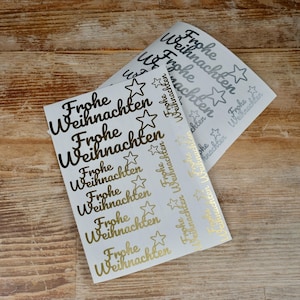 Frohe
Weihnachten
Frohe
Weihnachten
Frohe
Weihnachten
Frohe
Weihnachten
Frohe
Weihnachten
Frohe
Weihnachten
Frohe
Weihnachten
Frohe
Weihnachten
Frohe
Weihnachten